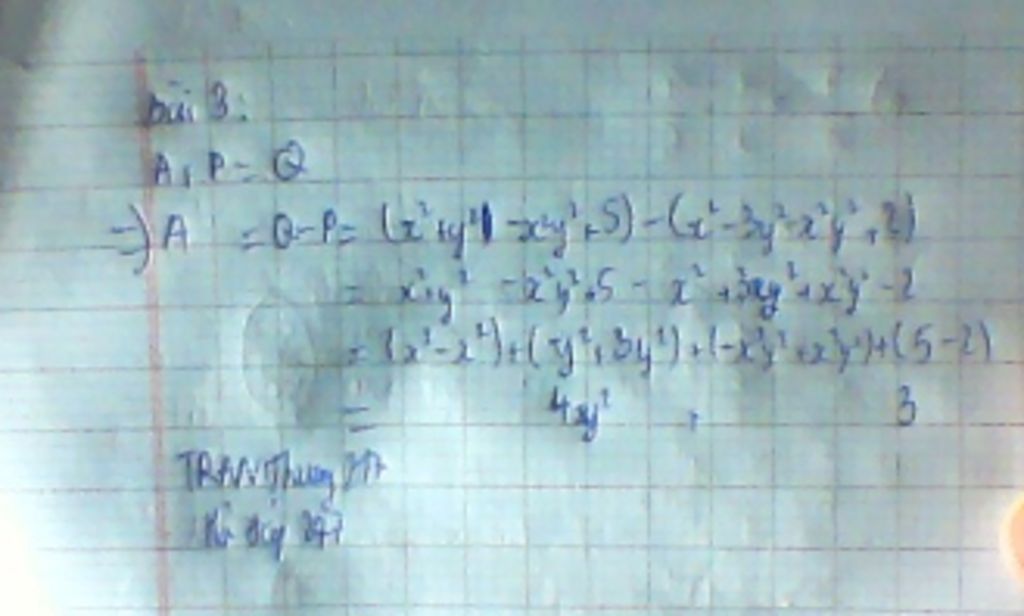 bài 3:
A + P = Q
=) A = Q - P = (x² + y² - x²y² + 5) - (x² - 3y² - x²y² + 2)
= x² + y² - x²y² + 5 - x² + 3xy² + x²y² - 2
= (x² - x²) + (y² + 3y²) + (-x²y² + x²y²) + (5 - 2)
= 4xy² + 3